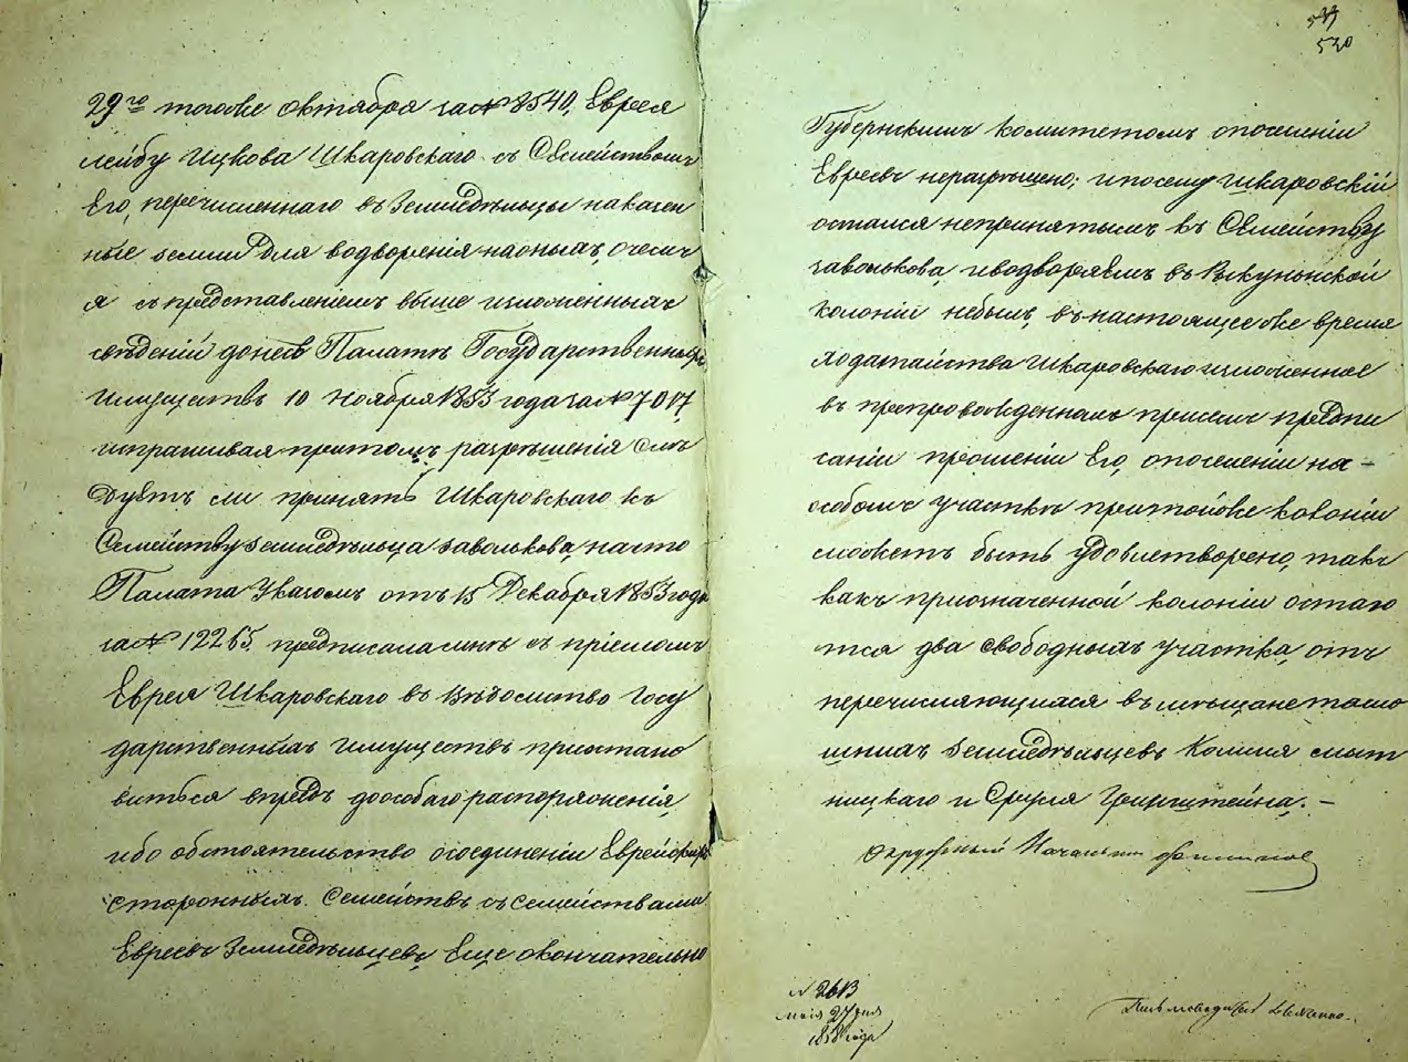 29го тогоже октября за № 8540, Еврея
Лейбу Ицкова Шкаровскаго съ Семействомъ
Его, перечисленнаго въ Земледѣльцы на казен
ные земли для водворенія на оныхъ, о чемъ
я съ представленіемъ выше изложенныхъ
свѣденій донесъ Палатѣ Государственныхъ
Имуществъ 10 Ноября 1853 года за № 7017,
испрашивая притомъ разрѣшенія Слѣ
дуетъ ли принять Шкаровскаго къ
Семейству Земледѣльца Завонькова, на что
Палата Указомъ отъ 15 Декабря 1853 года
за № 12265. предписала мнѣ съ пріемомъ
Еврея Шкаровскаго въ Вѣдомство Госу
дарственныхъ Имуществъ пріостано
виться впредь до особаго распоряженія,
ибо обстоятельство о соединеніи Еврейскихъ
стороннихъ Семействъ съ Семействами
Евреевъ Земледѣльцевъ, Еще окончательно
530
Губернскимъ комитетомъ о поселеніи
Евреевъ неразрѣшено; и посему Шкаровскій
остался непринятымъ къ Семейству
Завонькова, и водворяемъ въ
колоніи небылъ, въ настоящее же время
ходатайства Шкаровскаго изложенное
въ препровожденномъ при семъ предпи
саніи прошеніи Его, о поселеніи на –
особомъ участкѣ при той же колоніи
можетъ быть удовлетворено, такъ
какъ при означенной колоніи остаю
тся два свободныхъ участка, отъ
перечисляющихся въ мѣщане тамо
шнихъ Земледѣльцевъ
и Сруля Гринштейна. –
Окружный Начальникъ
№ 2613
мая 27 дня
1858 года
Письмоводитель